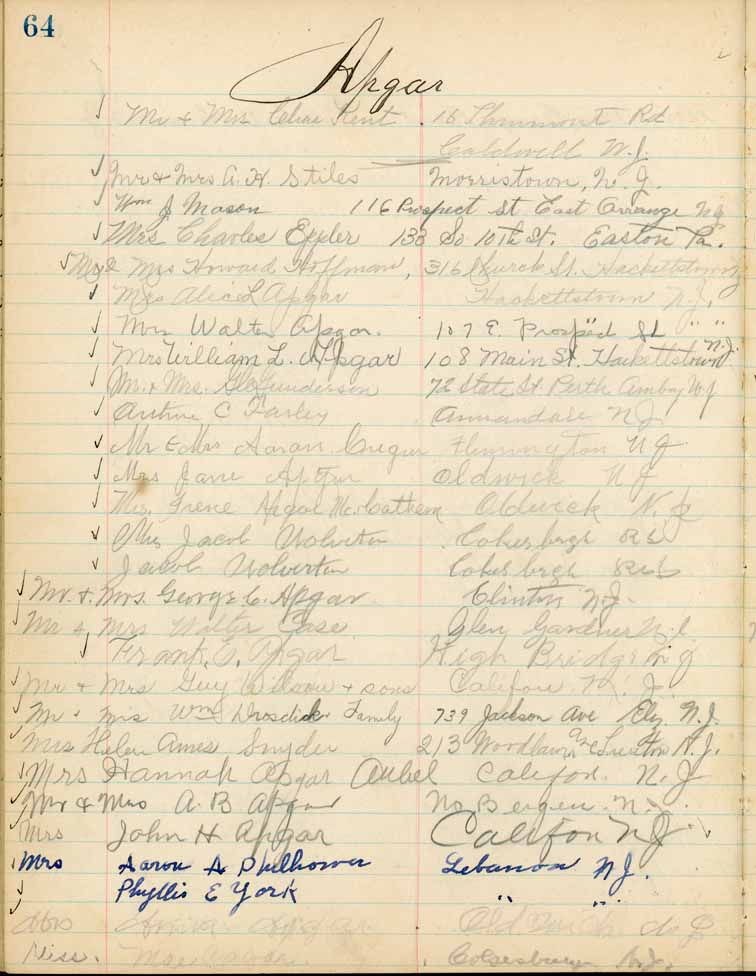 64
Apgar
Mr & Mrs Chas Kent 16 Rd
Caldwell N.J.
Mr & Mrs A. H. Stiles Morristown, N. J.
Wm J Mason 116 Prospect St East Orrange NJ
Mrs Charles Eppler 138 So 10th St. Easton Pa.
Mr & Mrs Howard Hoffman, 316 St. Hackettstown
Mrs Alice L Apgar Hackettstown N.J.
Mrs Walter Apgar. 107 E. Prospect St " "
Mrs William L. Apgar 108 Main St. Hackettstown N.J.
Mr. & Mrs. Gunderson 72 State St Perth Amboy N J
Arthur C Farley Annandale N J
Mr & Mrs Aaron Flemington N J
Mrs Jane Apgar Oldwick N J
Mrs. Irene Apgar Oldwick N. J
Mrs Jacob Wolverton
Jacob Wolverton
Mr. & Mrs. George C. Apgar Clinton N.J.
Mr & Mrs Walter Case Glen Gardner N.J.
Frank. E. Apgar High Bridge N J
Mr & Mrs Guy Wilson & sons Califon N. J.
Mr & Mrs Wm Drosdick Family 739 Jackson Ave Eliz. N.J.
Mrs Helen Ames Snyder 213 Woodlawn Ave N.J.
Mrs Hannah Apgar Aubel Califon. N. J
Mr & Mrs A. B Apgar No Bergen N.J.
Mrs John H Apgar Califon NJ
Mrs Aaron A Philhower Lebanon NJ.
Phyllis E York " "
Mrs Anna Apgar Oldwick N J
Miss. Mae Apgar N.J.